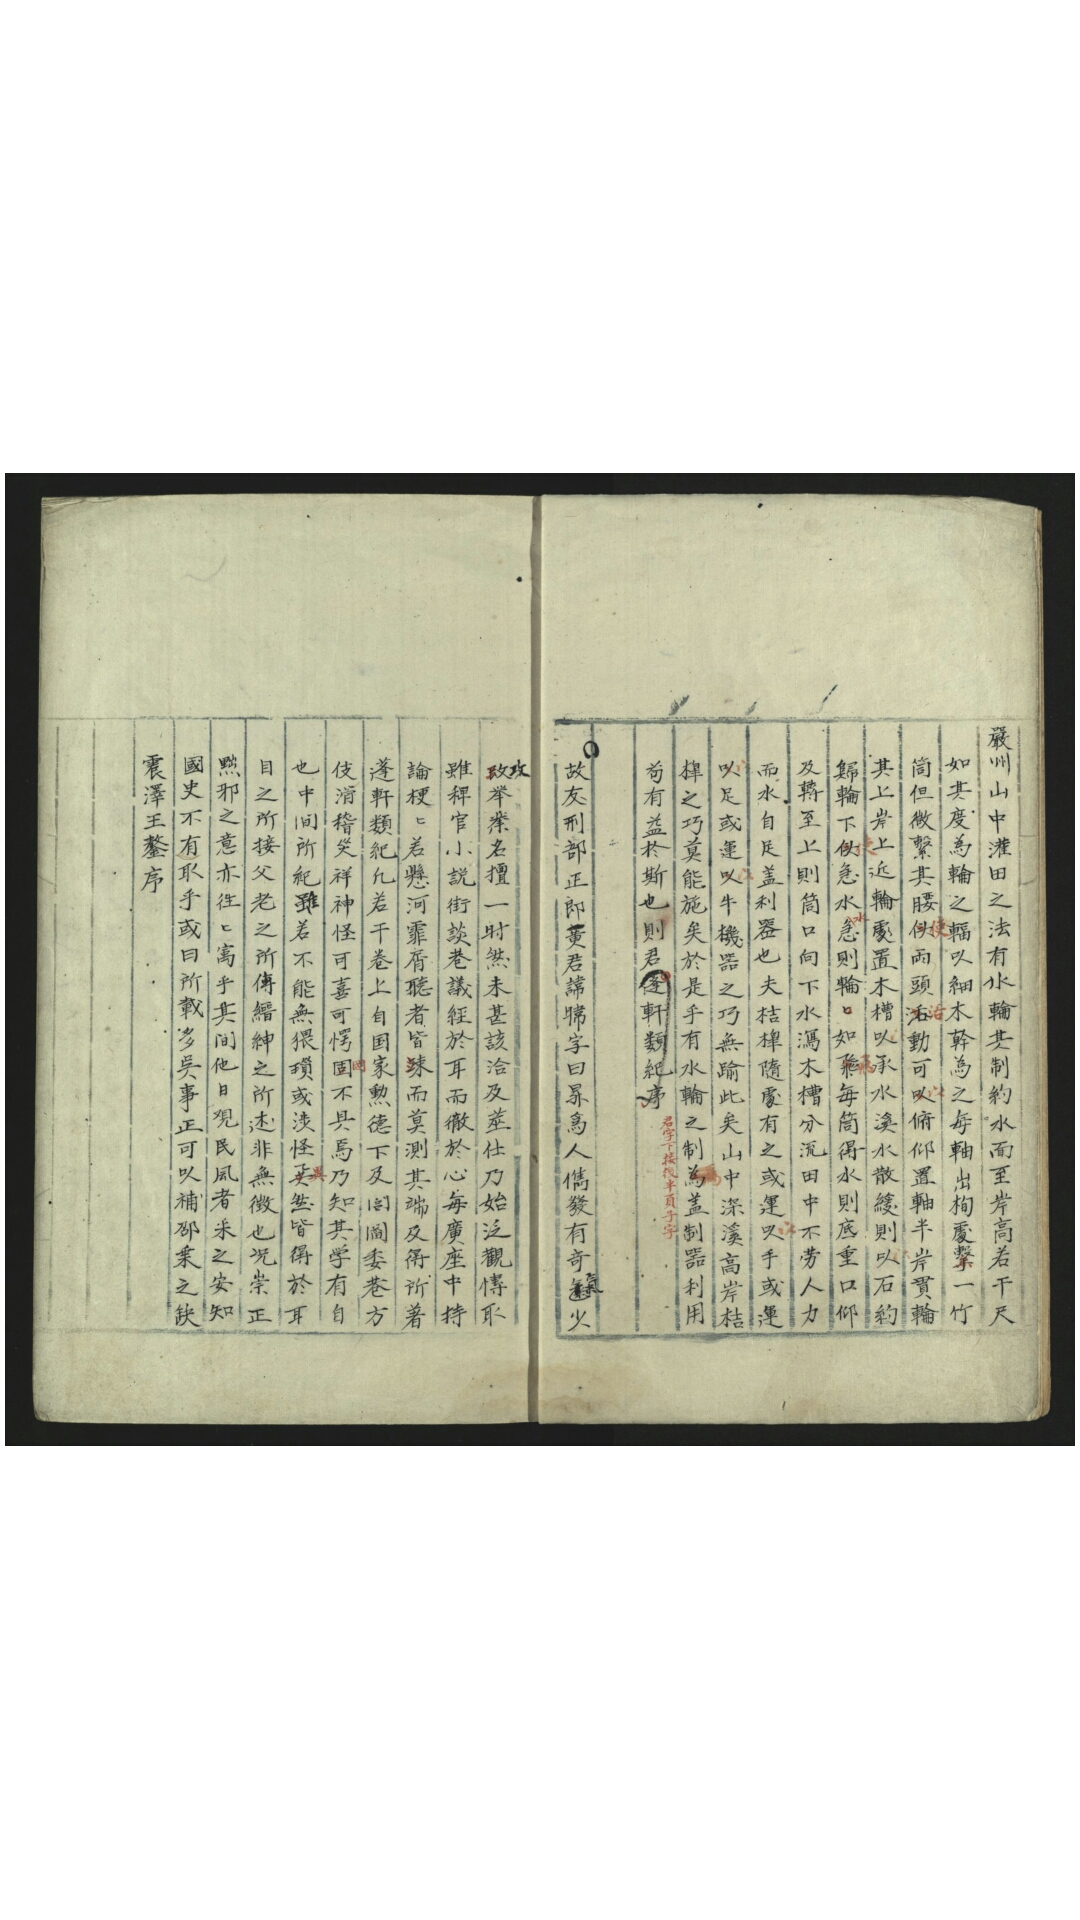 嚴州山中灌田之法有水輪其制約水面至岸高若干尺
如其度為輪之輻以細木幹為之每軸出栒處繫一竹
筒但微繫其腰使兩頭活動可以俯仰置軸半岸貫輪
其上岸上近輪處置木槽以承水溪水散緩則以石約
歸輪下使急水急則輪〻如飛每筒得水則底重口仰
及轉至上則筒口向下水瀉木槽分流田中不勞人力
而水自足盖利器也夫桔槔隨處有之或運以手或運
以足或運以牛機器之巧無踰此矣山中深溪高岸桔
槔之巧莫能施矣於是乎有水輪之制為盖制器利用
苟有益於斯也則君蓬軒類紀序
君字下接後半頁子字
故友刑部正郎黄君諱暐字日昇為人儁發有奇氣少
攻举業名擅一时然未甚該洽及莅仕乃始泛觀慱取
雖稗官小説街談巷議經於耳而徹於心每廣座中持
論梗〻若懸河霏屑聽者皆竦而莫測其端及得所著
蓬軒類紀九若干卷上自国家勲德下及閭閻委巷方
伎滑稽災祥神怪可喜可愕固不具焉乃知其学有自
也中间所紀雖若不能無猥瑣或渉怪異然皆得於耳
目之所接父老之所傳縉紳之所述非無徴也况崇正
黜邪之意亦往〻寓乎其间他日觀民風者采之安知
國史不有取乎或曰所載多吳事正可以補郡乗之缺
震澤王鏊序